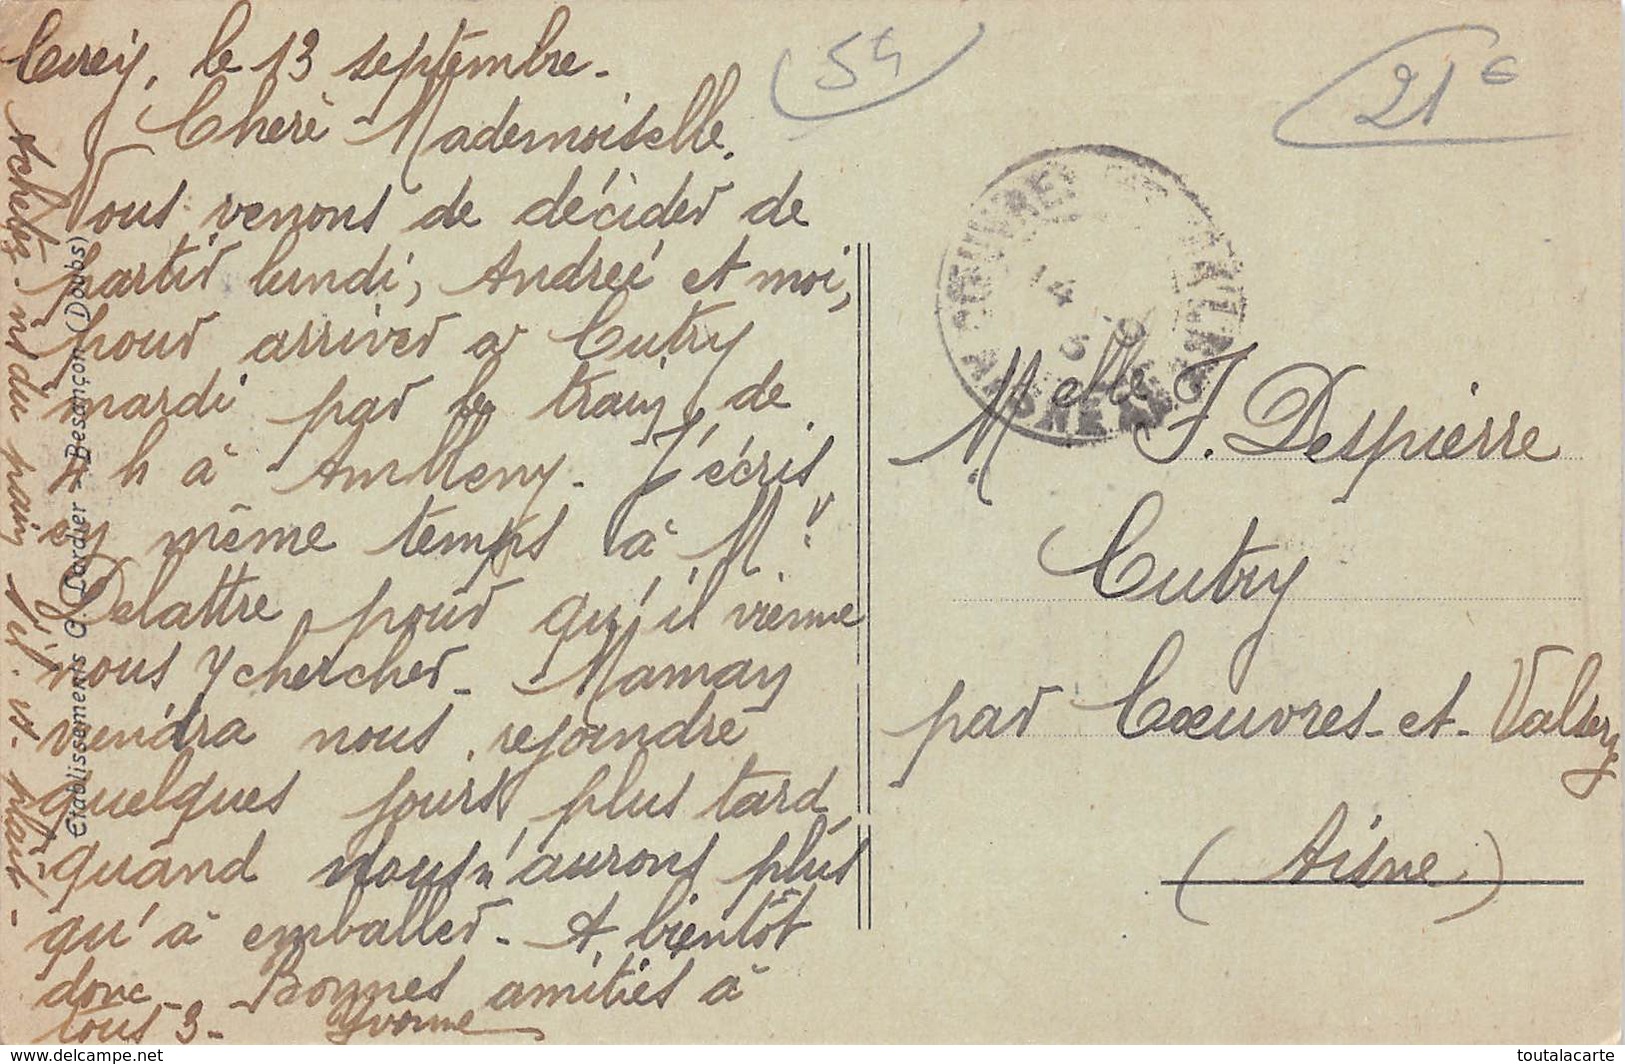 Cirey, le 13 septembre.
Chère Mademoiselle.
Nous venons de décider de
partir lundi, Andrée et moi,
pour arriver à Cutry
mardi par le train de
4 h à Ambleny. J'écris
en même temps à Mr
Delattre pour qu'il vienne
nous y chercher. Maman
viendra nous rejoindre
quelques jours plus tard
quand nous n'aurons plus
qu'à emballer. A bientôt
donc. Bonnes amitiés à
tous 3. Yvonne
Achetez-ns du pain s'il. vs. plaît.
Etablissements C. Lardier - Besançon (Doubs)
54
21€
COEUVRES ET VALSERY
14
AISNE
Melle J. Despierre
Cutry
par Coeuvres-et-Valsery
(Aisne)
delcampe.net
toutalacarte